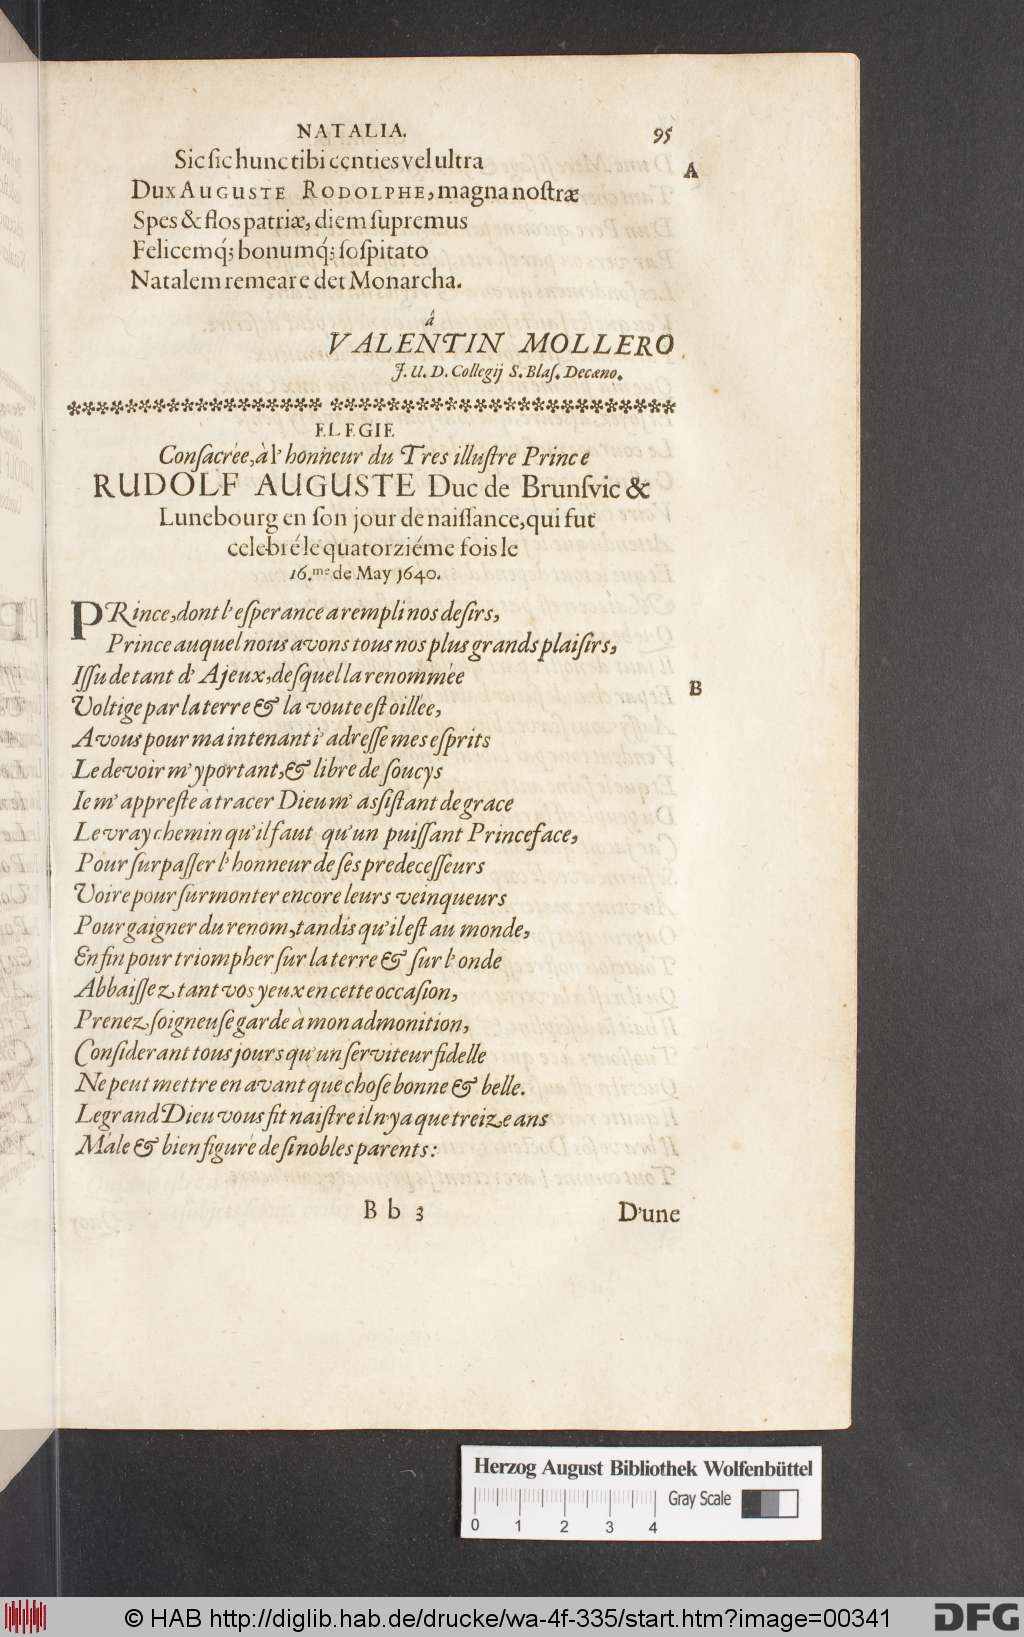 NATALIA. 95
Sic ſic hunc tibi centies vel ultra A
Dux AUGUSTE RODOLPHE, magna noſtræ
Spes & flos patriæ, diem ſupremus
Felicemq́; bonumq́; ſoſpitato
Natalem remeare det Monarcha.
â
VALENTIN MOLLERO
J. U. D. Collegij S. Blaſ. Decano.
ELEGIE
Conſacrée, à l' honneur du Tres illuſtre Prince
RUDOLF AUGUSTE Duc de Brunſvic &
Lunebourg en ſon jour de naiſſance, qui fut
celebré le quatorziéme fois le
16.me de May 1640.
PRince, dont l' eſperance a rempli nos deſirs,
Prince auquel nous avons tous nos plus grands plaiſirs,
Iſſu de tant d' Ajeux, deſquel la renommée B
Voltige par la terre & la voute eſtoillée,
A vous pour maintenant i' adreſſe mes eſprits
Le devoir m' y portant, & libre de ſoucys
Ie m' appreſte à tracer Dieu m' aſſiſtant de grace
Le vray chemin qu' il faut qu' un puiſſant Prince face,
Pour ſurpaſſer l' honneur de ſes predeceſſeurs
Voire pour ſurmonter encore leurs veinqueurs
Pour gaigner du renom, tandis qu' il eſt au monde,
Enfin pour triompher ſur la terre & ſur l' onde
Abbaiſſez tant vos yeux en cette occaſion,
Prenez ſoigneuſe garde à mon admonition,
Conſiderant tousjours qu' un ſerviteur fidelle
Ne peut mettre en avant que choſe bonne & belle.
Le grand Dieu vous fit naiſtre il n'y a que treize ans
Mâle & bien figuré de ſi nobles parents:
B b 3 D'une
Herzog August Bibliothek Wolfenbüttel
Gray Scale
0 1 2 3 4
© HAB http://diglib.hab.de/drucke/wa-4f-335/start.htm?image=00341 DFG